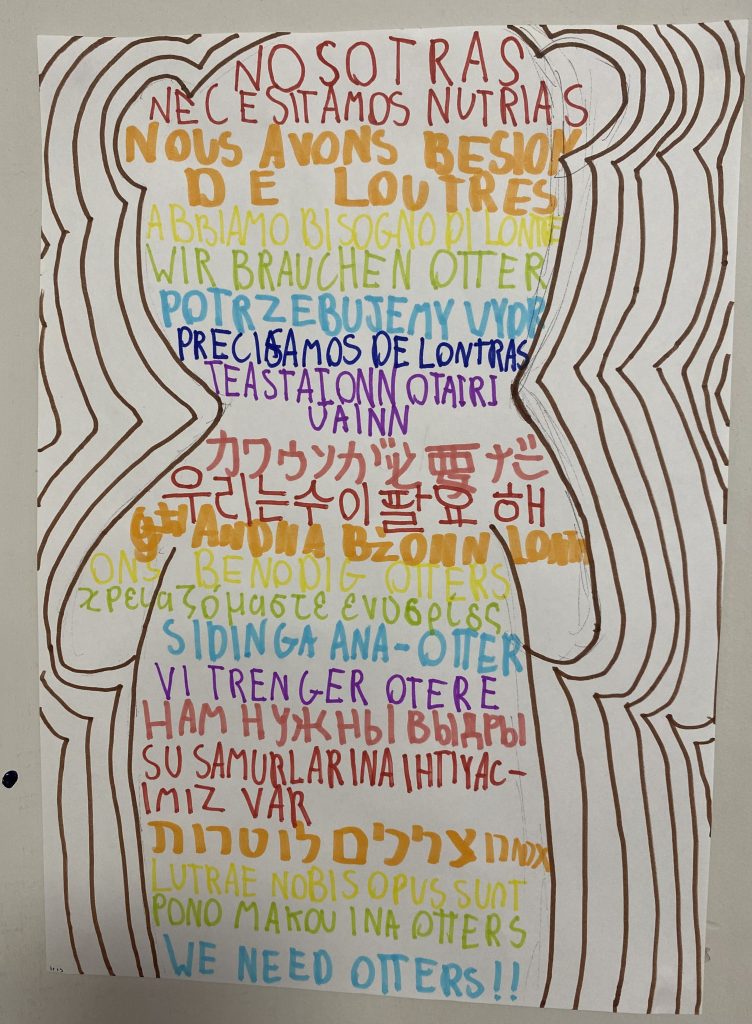 NOSOTRAS
NECESITAMOS NUTRIAS
NOUS AVONS BESION
DE LOUTRES
ABBIAMO BISOGNO DI LONTRE
WIR BRAUCHEN OTTER
POTRZEBUJEMY WYDR
PRECISAMOS DE LONTRAS
TEASTAIONN OTAIRI
UAINN
カワウソが必要だ
우리는수이팔요해
ANDNA BŻONN LONTRI
ONS BENODIG OTTERS
χρειαζόμαστε ενυδρίες
SIDINGA ANA-OTTER
VI TRENGER OTERE
НАМ НУЖНЫ ВЫДРЫ
SU SAMURLARINA IHTIYAC-
IMIZ VAR
צריכים לוטרות
LUTRAE NOBIS OPUS SUNT
PONO MAKOU INA OTTERS
WE NEED OTTERS!!